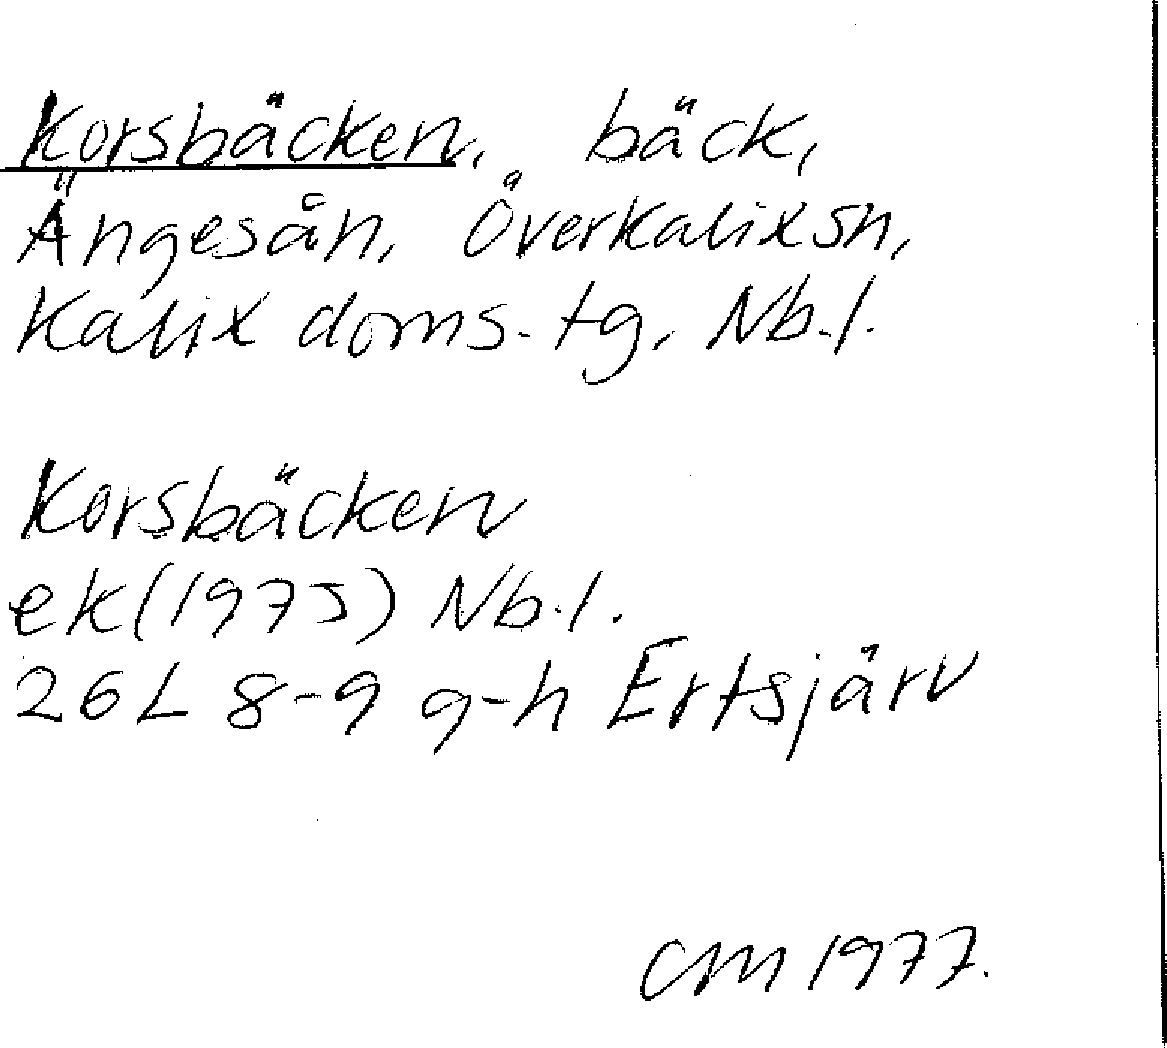 Korsbäcken, bäck,
Ängesån, Överkalix sn,
Kalix doms. tg, Nb.l.
Korsbäcken
ek (1975) Nb.l.
26L 8-9 g-h Ertsjärv
CM 1977.